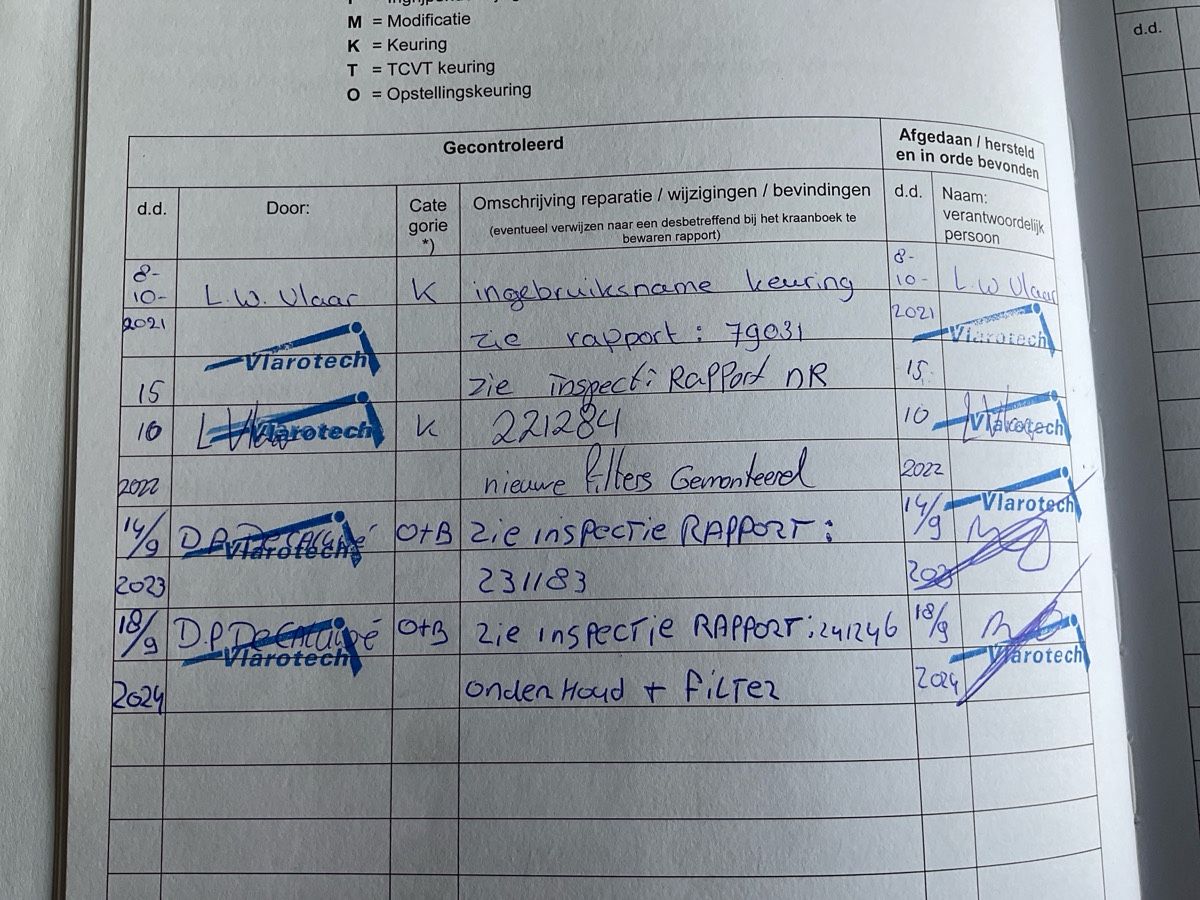 M = Modificatie
K = Keuring
T = TCVT keuring
O = Opstellingskeuring
d.d.
Gecontroleerd
Afgedaan / hersteld
en in orde bevonden
d.d.
Door:
Cate
gorie
*)
Omschrijving reparatie / wijzigingen / bevindingen
(eventueel verwijzen naar een desbetreffend bij het kraanboek te
bewaren rapport)
d.d.
Naam:
verantwoordelijk
persoon
8-
10-
2021
L.W. Vlaar
Vlarotech
K
ingebruiksname keuring
zie rapport: 79031
8-
10-
2021
L.W Vlaar
Vlarotech
15
10
2022
Vlarotech
K
zie inspect: Rapport nR
221284
nieuwe filters Gemonteerd
15
10
2022
Vlarotech
14/9
2023
Vlarotech
O+B
Zie inspectie RAPPORT:
231183
14/9
2023
Vlarotech
18/9
2024
Vlarotech
O+B
Zie inspectie RAPPORT: 241246
onderHoud + Filter
18/9
2024
Vlarotech